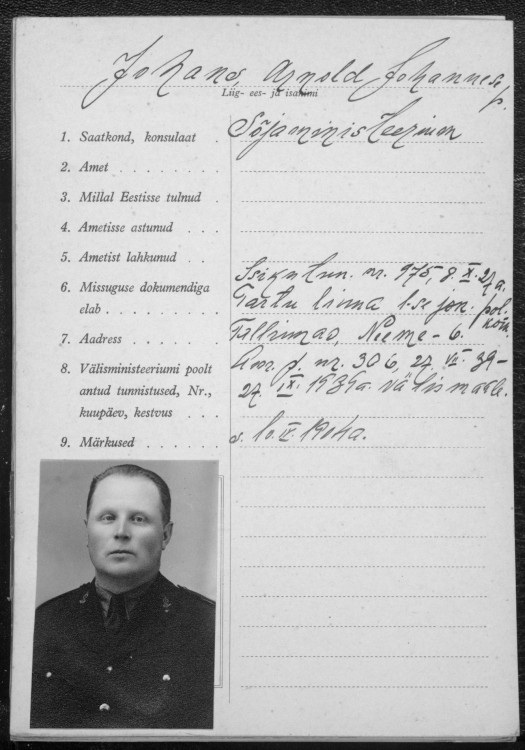 Johans, Arnold Johannese p.
Liig- ees- ja isanimi
1. Saatkond, konsulaat . Sõjaministeerium
2. Amet . . . . . . . .
3. Millal Eestisse tulnud .
4. Ametisse astunud . . .
5. Ametist lahkunud . . .
6. Missuguse dokumendiga Isikutun. nr. 975, 8. X. 27 a.
elab . . . . . . . . Tartu linna I-se jsk. pol.
7. Aadress . . . . . . Tallinnas, Neeme - 6.
8. Välisministeeriumi poolt nr. 306, 27. VII 39 -
antud tunnistused, Nr., 27. IX. 1939a. välismaale.
kuupäev, kestvus . . .
9. Märkused . . . . . . s. 10. IX 1904a.